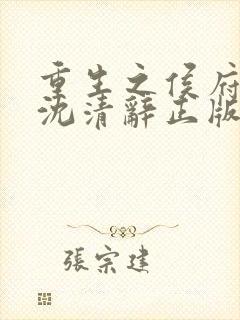 重生之侯府
沈清辭正版
張宗建